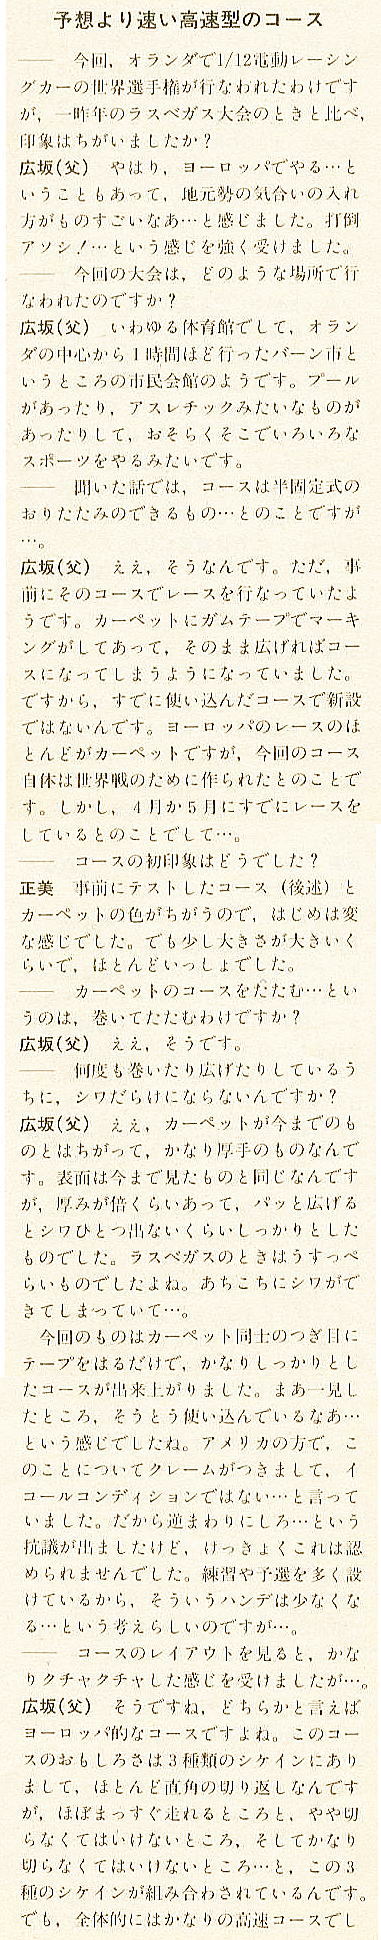 予想より速い高速型のコース
―― 今回，オランダで1/12電動レーシン
グカーの世界選手権が行なわれたわけです
が，一昨年のラスベガス大会のときと比べ，
印象はちがいましたか？
広坂(父) やはり，ヨーロッパでやる…と
いうこともあって，地元勢の気合いの入れ
方がものすごいなあ…と感じました。打倒
アソシ！…という感じを強く受けました。
―― 今回の大会は，どのような場所で行
なわれたのですか？
広坂(父) いわゆる体育館でして，オラン
ダの中心から1時間ほど行ったバーン市と
いうところの市民会館のようです。プール
があったり，アスレチックみたいなものが
あったりして，おそらくそこでいろいろな
スポーツをやるみたいです。
―― 聞いた話では，コースは半固定式の
おりたたみのできるもの…とのことですが
…。
広坂(父) ええ，そうなんです。ただ，事
前にそのコースでレースを行なっていたよ
うです。カーペットにガムテープでマーキ
ングがしてあって，そのまま広げればコー
スになってしまうようになっていました。
ですから，すでに使い込んだコースで新設
ではないんです。ヨーロッパのレースのほ
とんどがカーペットですが，今回のコース
自体は世界戦のために作られたとのことで
す。しかし，4月か5月にすでにレースを
しているとのことでして…。
―― コースの初印象はどうでした？
正美 事前にテストしたコース（後述）と
カーペットの色がちがうので，はじめは変
な感じでした。でも少し大きさが大きいく
らいで，ほとんどいっしょでした。
―― カーペットのコースをたたむ…とい
うのは，巻いてたたむわけですか？
広坂(父) ええ，そうです。
―― 何度も巻いたり広げたりしているう
ちに，シワだらけにならないんですか？
広坂(父) ええ，カーペットが今までのも
のとはちがって，かなり厚手のものなんで
す。表面は今まで見たものと同じなんです
が，厚みが倍くらいあって，パッと広げる
とシワひとつ出ないくらいしっかりとした
ものでした。ラスベガスのときはうすっぺ
らいものでしたよね。あちこちにシワがで
きてしまっていて…。
今回のものはカーペット同士のつぎ目に
テープをはるだけで，かなりしっかりとし
たコースが出来上がりました。まあ一見し
たところ，そうとう使い込んでいるなあ…
という感じでしたね。アメリカの方で，こ
のことについてクレームがつきまして，イ
コールコンディションではない…と言って
いました。だから逆まわりにしろ…という
抗議が出ましたけど，けっきょくこれは認
められませんでした。練習や予選を多く設
けているから，そういうハンデは少なくな
る…という考えらしいのですが…。
―― コースのレイアウトを見ると，かな
りクチャクチャした感じを受けましたが…。
広坂(父) そうですね，どちらかと言えば
ヨーロッパ的なコースですよね。このコー
スのおもしろさは3種類のシケインにあり
まして，ほとんど直角の切り返しなんです
が，ほぼまっすぐ走れるところと，やや切
らなくてはいけないところ，そしてかなり
切らなくてはいけないところ…と，この3
種のシケインが組み合わされているんです。
でも，全体的にはかなりの高速コースでし